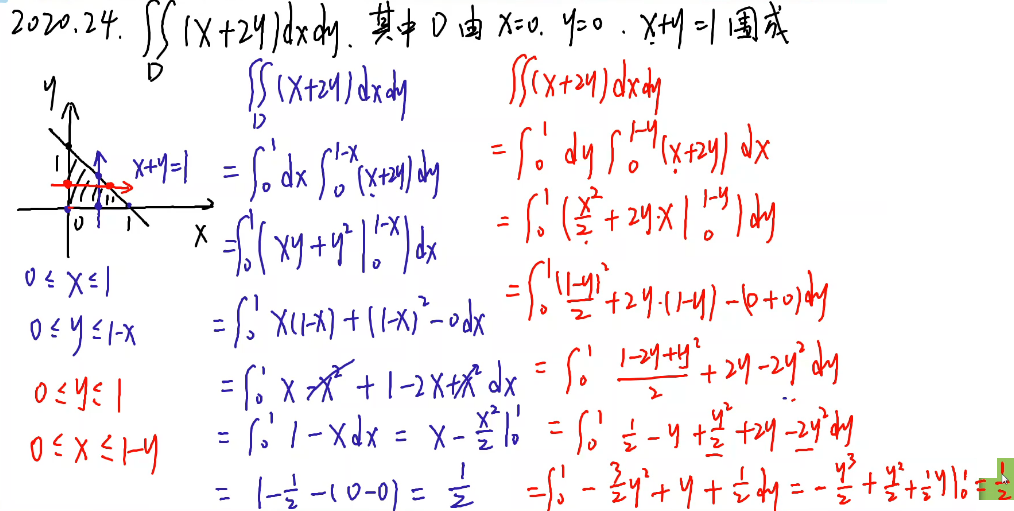 2020.24. ∬_D (x+2y)dxdy. 其中 D 由 x=0. y=0. x+y=1 围成
y
1
x+y=1
0
1
x
0≤x≤1
0≤y≤1-x
0≤y≤1
0≤x≤1-y
∬_D (x+2y)dxdy
=∫₀¹dx∫₀^{1-x}(x+2y)dy
=∫₀¹(xy+y²|₀^{1-x})dx
=∫₀¹ x(1-x)+(1-x)²-0dx
=∫₀¹ x-x²+1-2x+x²dx
=∫₀¹ 1-xdx = x-x²/2|₀¹
= 1-1/2-(0-0) = 1/2
∬(x+2y)dxdy
=∫₀¹ dy∫₀^{1-y}(x+2y)dx
=∫₀¹(x²/2+2y·x|₀^{1-y})dy
=∫₀¹ (1-y)²/2+2y·(1-y)-(0+0)dy
=∫₀¹ (1-2y+y²)/2+2y-2y²dy
=∫₀¹ 1/2-y+y²/2+2y-2y²dy
=∫₀¹ -3/2y²+y+1/2dy = -y³/2+y²/2+1/2y|₀¹=1/2